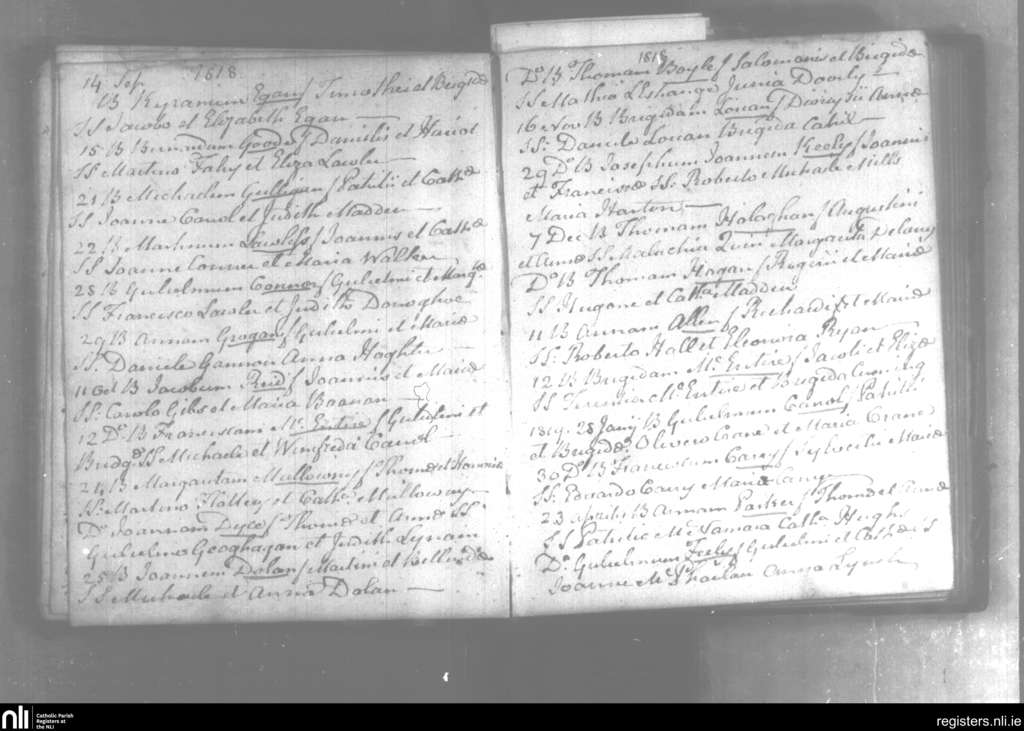 14 Sep. 1818
B Kyranum Egan f Timothei et Brigidæ
SS Jacobo et Elizabeth Egan
15 B Bernardum Good f Danielis et
SS Martino Fahy et Eliza Lawlor
21 B Michaelem Gulligan f Patritii et Cathæ
SS Joanne Carrol et Judith Madden
22 B Lawless f Joannis et Cathæ
SS Joanne Connor et Maria Walken
28 B Gulielmum Connor f Gulielmi et
SS Francisco Lawler et Judith Donoghoe
29 B Annam Grogan f Gulielmi et Mariæ
SS. Daniele Gannon Anna
11 Oct B Jacobum Reid f Joannis et Mariæ
SS. Carolo Gibs et Maria
12 Do. B Franciscam Mc. Entire f Gulielmi et
SS Michaele et Winfreda Carrol
24 B Margaritam Mullowny f Thomæ et
SS. Martino et Mullowny
Do Joannem f Thomæ et Annæ SS.
Gulielmo Geoghagan et Judith Lynam
25 B Joannem Dolan f Martini et
SS Michaele et Anna Dolan
1818
Do. B Thomam Boyle f Salomonis et Brigidæ
SS Mathia Junia Dooly
16 Nov B Brigidam f et Annæ
SS. Daniele Brigida Cahil
29 Do B Josephum Joannem Keely f Joannis
et Franciscæ SS. Roberto Michaele Mills
Maria Harton
7 Dec B Thomam Holaghan f Augustini
et Annæ SS Malachia Quin Margarita Delany
Do B Thomam Hogan f Rogerii et Mariæ
SS Hugone et Catha Madden
11 B Annam Allen f Richardi et Mariæ
SS. Roberto Hall et Eleonora Ryan
12 B Brigidam Mc. Entire f Jacobi et Elizæ
SS Mc. Entire et Brigida
1819. 28 B Gulielmum Carrol f Patritii
et Brigidæ Olivero Crane et Maria Crane
30 Do B Franciscum Carry f Sylvestri Mariæ
SS. Edvardo Carry Maria Carry
23 Aprilis B Annam Parker f Thomæ et Annæ
SS Patritio Mc. Namara Catha Hughs
Do. Gulielmum f Gulielmi et Cathæ SS
Joanne Anna Lynch
nli
Catholic Parish
Registers at
the NLI
registers.nli.ie